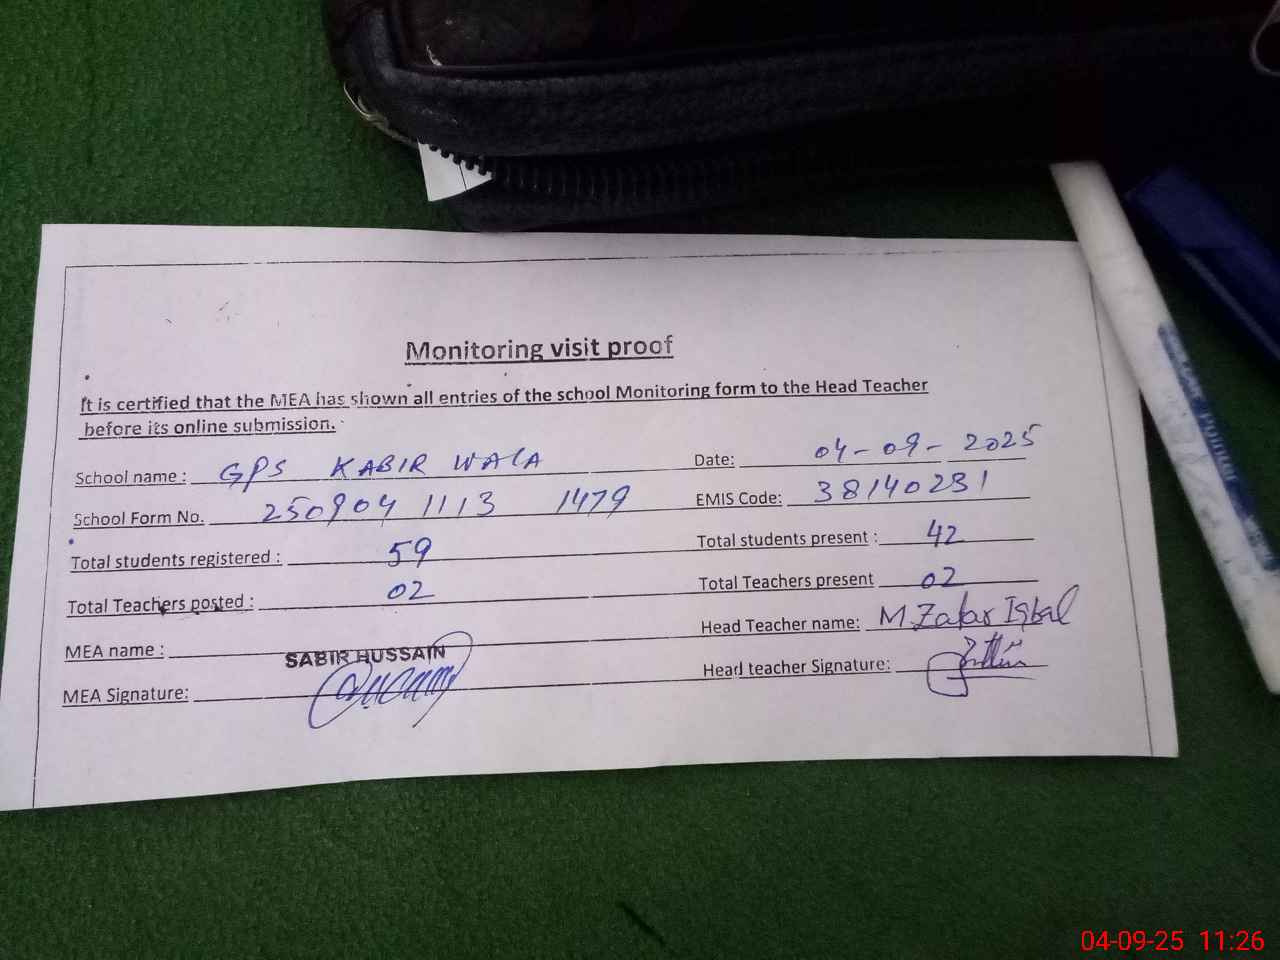 Monitoring visit proof
It is certified that the MEA has shown all entries of the school Monitoring form to the Head Teacher
before its online submission.
School name : GPS KABIR WALA Date: 04-09-2025
School Form No. 250904 1113 1479 EMIS Code: 38140231
Total students registered : 59 Total students present : 42
Total Teachers posted : 02 Total Teachers present 02
MEA name : SABIR HUSSAIN Head Teacher name: M Zafar Iqbal
MEA Signature: Head teacher Signature:
04-09-25 11:26